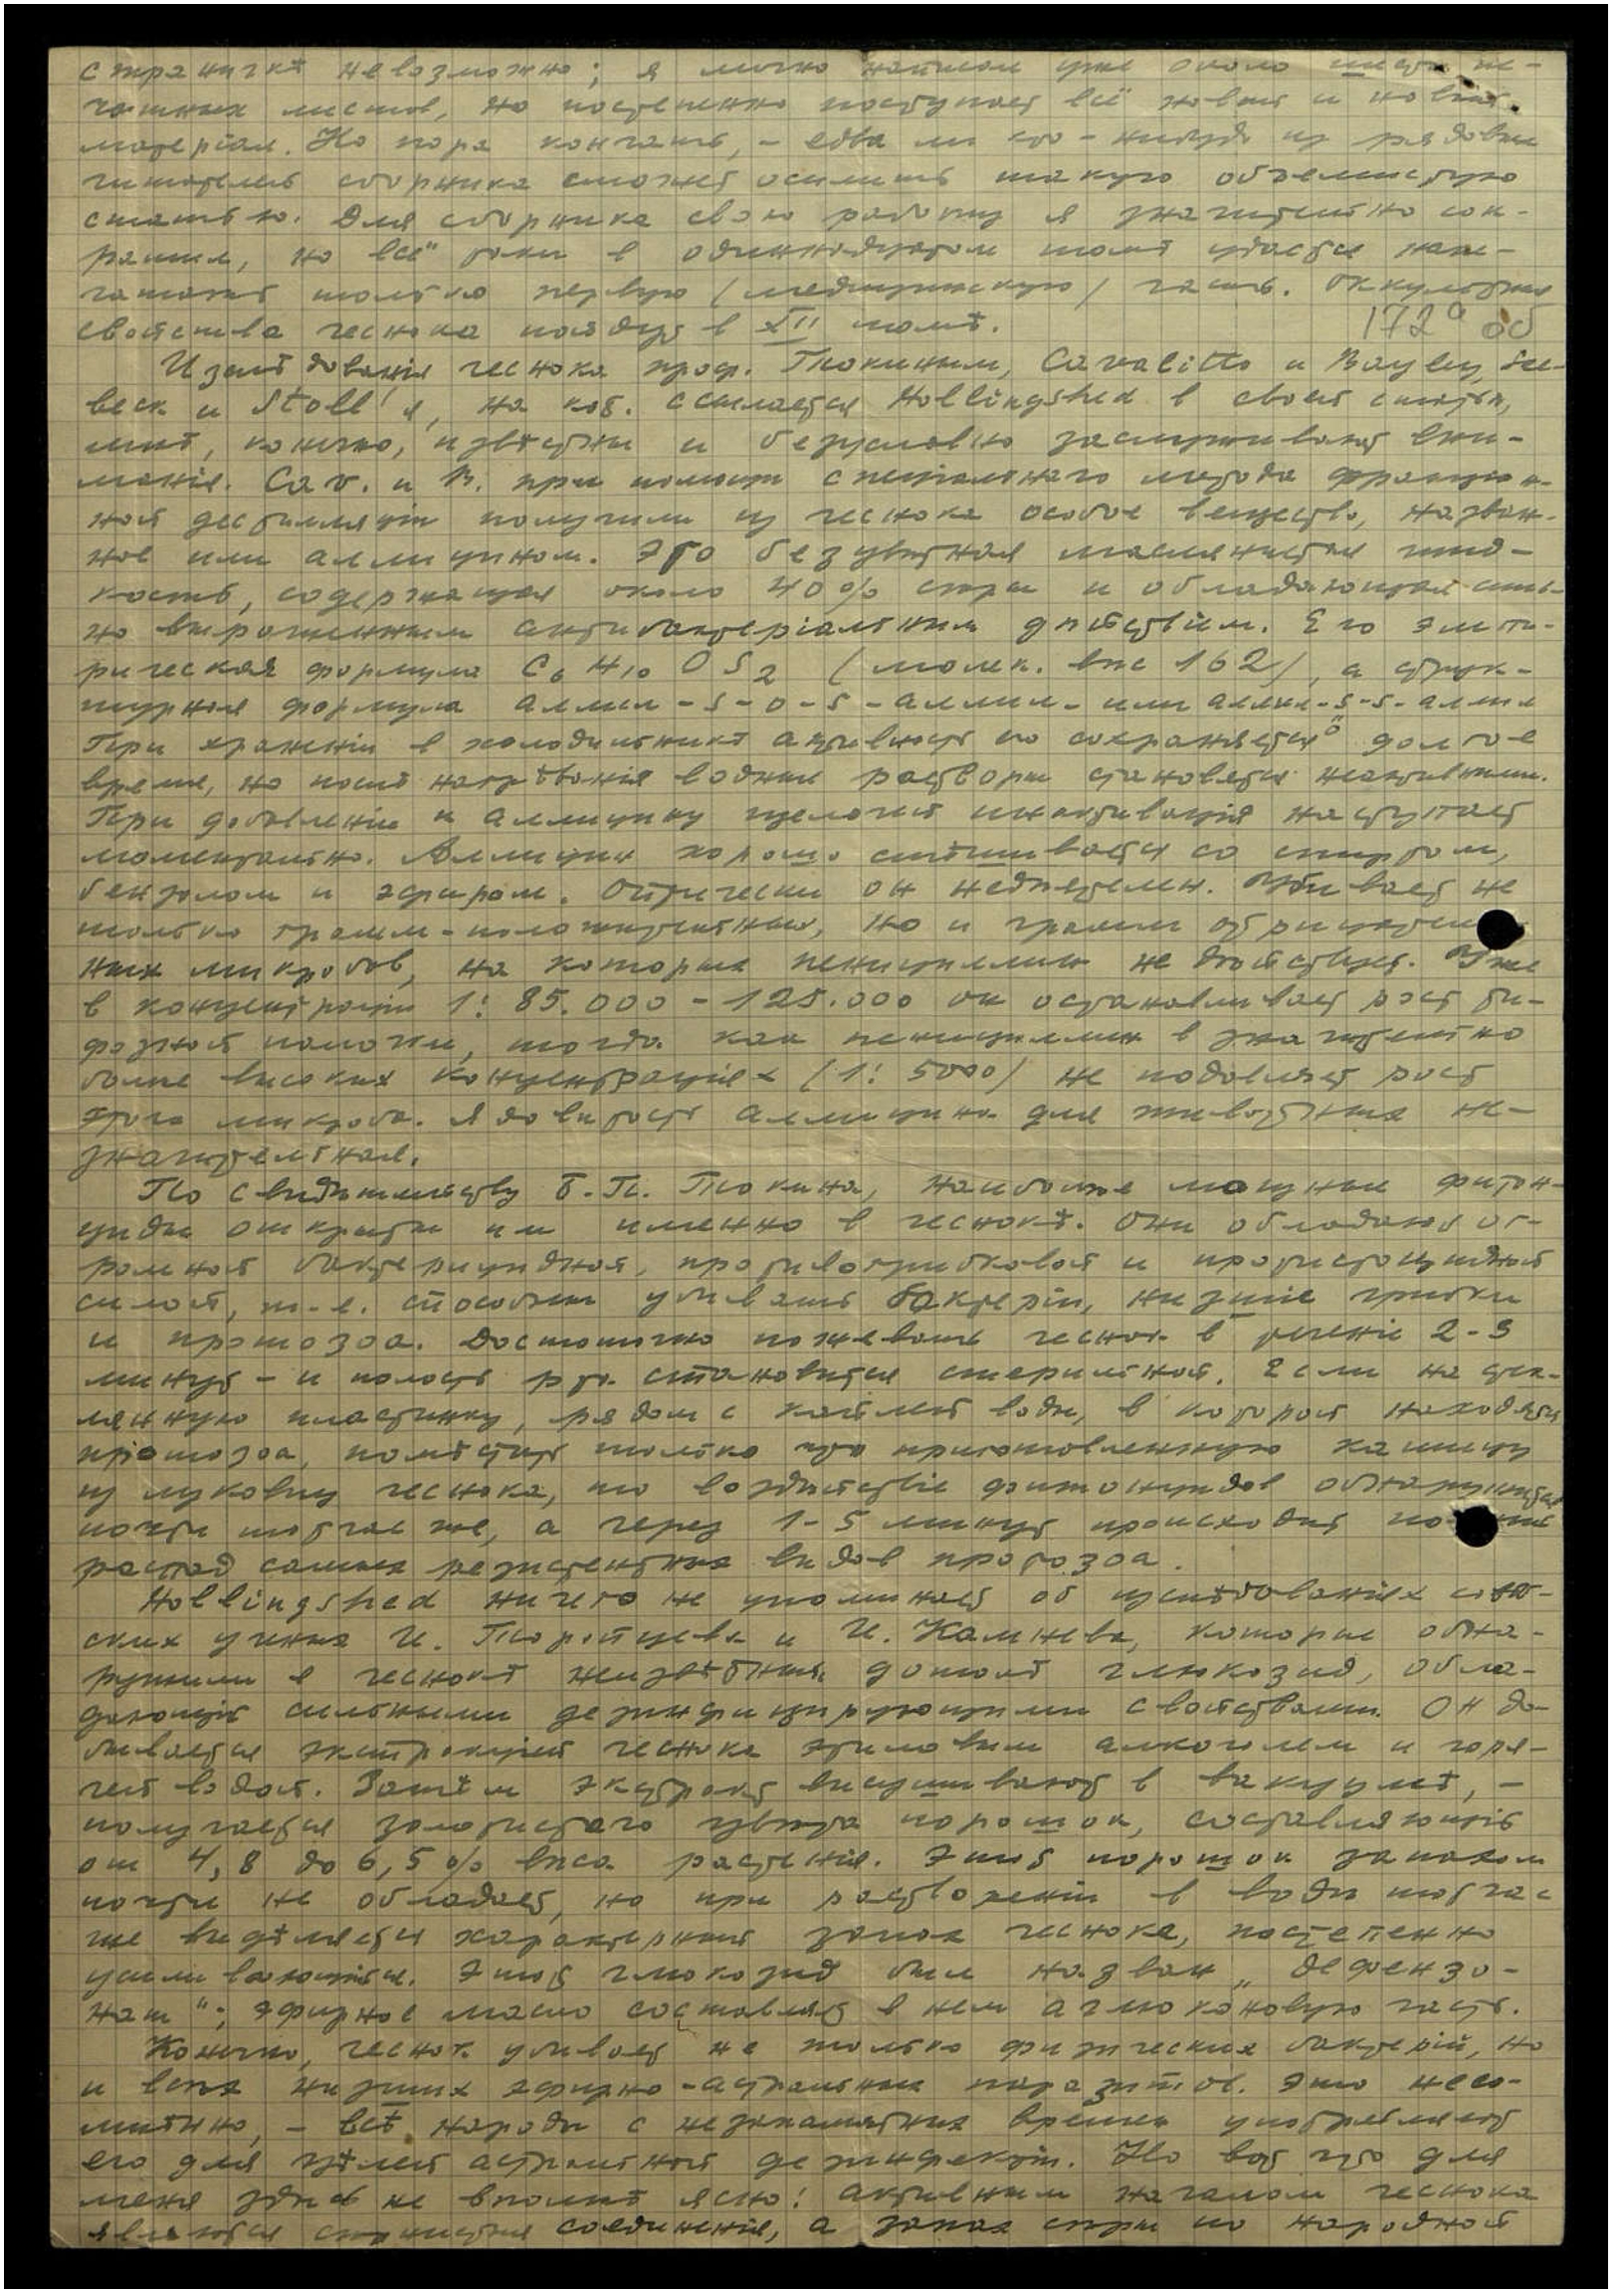 страничкѣ невозможно; я лично написал уже около шести пе-
чатных листов, но постепенно поступает всё новый и новый
матеріал. Но пора кончать, – едва ли кто-нибудь из рядовых
читателей сборника сможет осилить такую объемистую
статью. Для сборника свою работу я значительно сок-
ратил, но всё таки в одиннадцатом томѣ удастся напе-
чатать только первую (медицинскую) часть. Оккультныя
свойства чеснока пойдут в XII томѣ.
172а об
Изслѣдованія чеснока проф. Токиным, Cavalitto и Bayley, See-
beck и Stoll'я, на кот. ссылается Hollingshed в своей статьѣ,
мнѣ, конечно, извѣстны и безусловно заслуживают вни-
манія. Cav. и B. при помощи спеціальнаго метода фракціон-
ной дестилляціи получили из чеснока особое вещество, назван-
ное ими аллицином. Это безцвѣтная маслянистая жид-
кость, содержащая около 40% сѣры и обладающая силь-
но выраженным антибактеріальным дѣйствіем. Его эмпи-
рическая формула C6 H10 O S2 (молек. вѣс 162), а струк-
турная формула аллил-S-O-S-аллил- или аллил-S-S-аллил
O
При храненіи в холодильникѣ активность его сохраняется долгое
время, но послѣ нагрѣванія водные растворы становятся неактивными.
При добавленіи к аллицину щелочей инактивація наступает
моментально. Аллицин хорошо смѣшивается со спиртом,
бензолом и эфиром. Оптически он недѣятелен. Убивает не
только грамм-положительных, но и грамм отрицатель-
ных микробов, на которых пенициллин не дѣйствует. Уже
в концентраціи 1:85.000 - 125.000 он останавливает рост ти-
фозной палочки, тогда как пенициллин в значительно
болѣе высоких концентраціях (1:5000) не подавляет рост
этого микроба. Ядовитость аллицина для животных не-
значительная.
По свидѣтельству Б.П. Токина, наиболѣе мощные фитон-
циды открыты им именно в чеснокѣ. Они обладают ог-
ромной бактерицидной, противогрибковой и протистоцидной
силой, т.е. способны убивать бактеріи, низшіе грибки
и протозоа. Достаточно пожевать чеснок в теченіе 2-3
минут – и полость рта становится стерильной. Если на стек-
лянную пластинку, рядом с каплей воды, в которой находятся
протозоа, помѣстить только что приготовленную кашицу
из луковиц чеснока, то воздѣйствіе фитонцидов обнаружится
почти тотчас же, а через 1-5 минут происходит полный
распад самых резистентных видов протозоа.
Hollingshed ничего не упоминает об изслѣдованіях совѣт-
ских ученых И. Торопцева и И. Камнева, которые обна-
ружили в чеснокѣ неизвѣстный дотолѣ глюкозид, обла-
дающій сильными дезинфицирующими свойствами. Он до-
бывается экстракціей чеснока этиловым алкоголем и горя-
чей водой. Затѣм экстракт высушивают в вакуумѣ, –
получается золотистаго цвѣта порошок, составляющій
от 4,8 до 6,5% вѣса растенія. Этот порошок запахом
почти не обладает, но при растворенiи в водѣ тотчас
же выдѣляется характерный запах чеснока, постепенно
усиливающійся. Этот глюкозид был назван „дефензо-
нат“; эфирное масло составляет в нем аглюконовую часть.
Конечно, чеснок убивает не только физических бактерій, но
и всѣх низших эфирно-астральных паразитов. Это несо-
мнѣнно, – всѣ народы с незапамятных времен употребляют
его для цѣлей астральной дезинфекціи. Но вот что для
меня здѣсь не вполнѣ ясно: активным началом чеснока
являются сѣрнистыя соединенія, а запах сѣры по народной